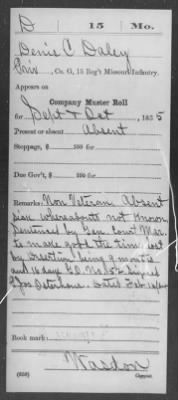 D 15 Mo.
Denis C Daley
Priv., Co. G, 15 Reg't Missouri Infantry.
Appears on
Company Muster Roll
for Sept & Oct, 1865
Present or absent Absent
Stoppage, $ 100 for
Due Gov't, $ 100 for
Remarks: Non Veteran Absent
sick whereabouts not known
Sentenced by Gen. Court Mar.
to make good the time lost
by desertion being 9 months
and 16 days G.O. No. 52 signed
P. Jos. Osterhaus. Dated Feb 16/64
Book mark:
Wasdon
(858) Copyist.